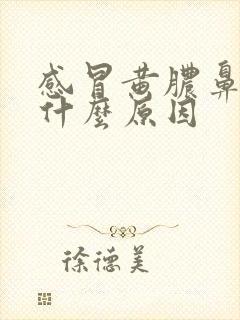 感冒黄膿鼻
什麼原因
徐德美